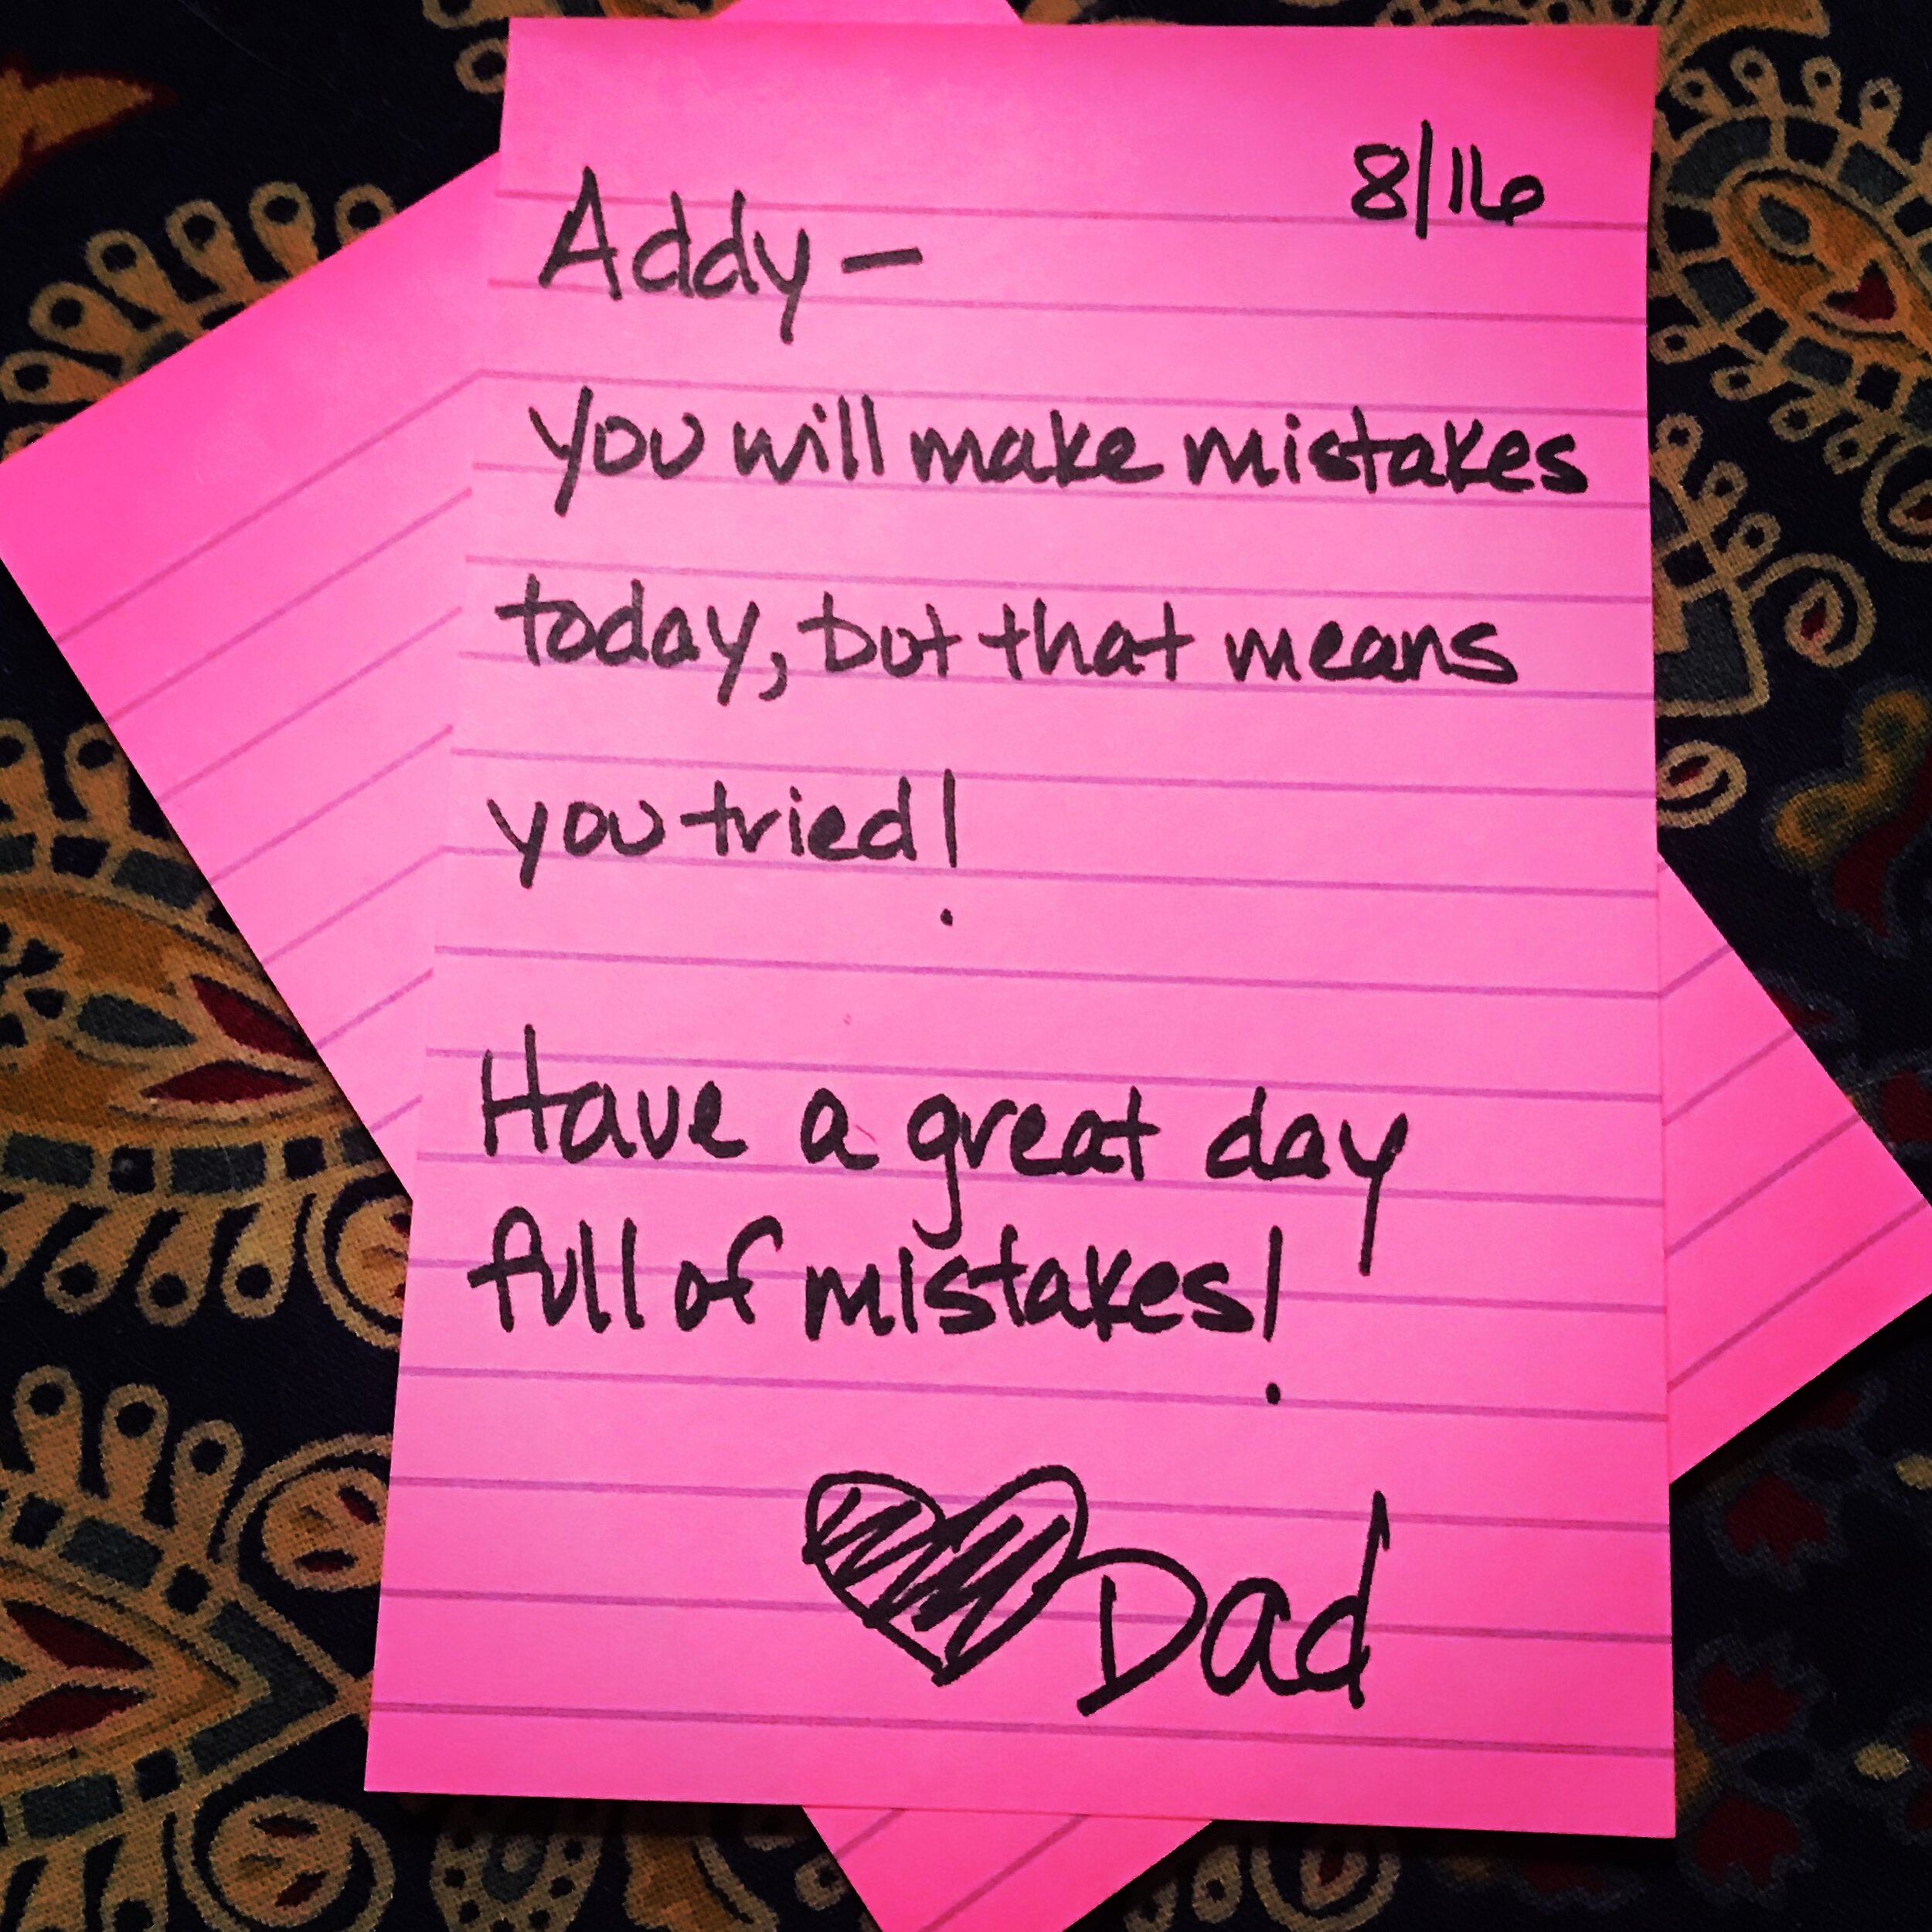 8/16
Addy –
you will make mistakes
today, but that means
you tried!
Have a great day
full of mistakes!
Dad